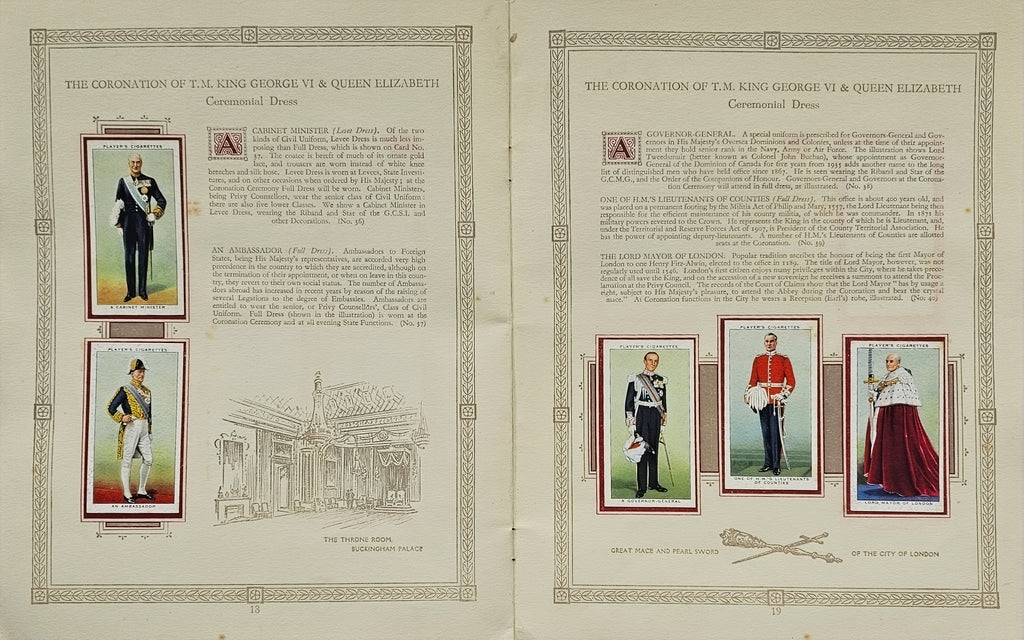 THE CORONATION OF T.M. KING GEORGE VI & QUEEN ELIZABETH
Ceremonial Dress
PLAYER'S CIGARETTES
A CABINET MINISTER
A CABINET MINISTER (Levee Dress). Of the two
kinds of Civil Uniform, Levee Dress is much less im-
posing than Full Dress, which is shown on Card No.
37. The coatee is bereft of much of its ornate gold
lace, and trousers are worn instead of white knee
breeches and silk hose. Levee Dress is worn at Levees, State Investi-
tures, and on other occasions when ordered by His Majesty; at the
Coronation Ceremony Full Dress will be worn. Cabinet Ministers,
being Privy Counsellors, wear the senior class of Civil Uniform:
there are also five lower Classes. We show a Cabinet Minister in
Levee Dress, wearing the Riband and Star of the G.C.S.I. and
other Decorations. (No. 36)
AN AMBASSADOR (Full Dress). Ambassadors to Foreign
States, being His Majesty's representatives, are accorded very high
precedence in the country to which they are accredited, although on
the termination of their appointment, or when on leave in this coun-
try, they revert to their own social status. The number of Ambassa-
dors abroad has increased in recent years by reason of the raising of
several Legations to the degree of Embassies. Ambassadors are
entitled to wear the senior, or Privy Counsellors', Class of Civil
Uniform. Full Dress (shown in the illustration) is worn at the
Coronation Ceremony and at all evening State Functions. (No. 37)
PLAYER'S CIGARETTES
AN AMBASSADOR
THE THRONE ROOM,
BUCKINGHAM PALACE
18
THE CORONATION OF T.M. KING GEORGE VI & QUEEN ELIZABETH
Ceremonial Dress
A GOVERNOR-GENERAL. A special uniform is prescribed for Governors-General and Gov-
ernors in His Majesty's Oversea Dominions and Colonies, unless at the time of their appoint-
ment they hold senior rank in the Navy, Army or Air Force. The illustration shows Lord
Tweedsmuir (better known as Colonel John Buchan), whose appointment as Governor-
General of the Dominion of Canada for five years from 1935 adds another name to the long
list of distinguished men who have held office since 1867. He is seen wearing the Riband and Star of the
G.C.M.G., and the Order of the Companions of Honour. Governors-General and Governors at the Corona-
tion Ceremony will attend in full dress, as illustrated. (No. 38)
ONE OF H.M.'S LIEUTENANTS OF COUNTIES (Full Dress). This office is about 400 years old, and
was placed on a permanent footing by the Militia Act of Philip and Mary, 1557, the Lord Lieutenant being then
responsible for the efficient maintenance of his county militia, of which he was commander. In 1871 his
military powers reverted to the Crown. He represents the King in the county of which he is Lieutenant, and,
under the Territorial and Reserve Forces Act of 1907, is President of the County Territorial Association. He
has the power of appointing deputy-lieutenants. A number of H.M.'s Lieutenants of Counties are allotted
seats at the Coronation. (No. 39)
THE LORD MAYOR OF LONDON. Popular tradition ascribes the honour of being the first Mayor of
London to one Henry Fitz-Alwin, elected to the office in 1189. The title of Lord Mayor, however, was not
regularly used until 1546. London's first citizen enjoys many privileges within the City, where he takes prece-
dence of all save the King, and on the accession of a new sovereign he receives a summons to attend the Proc-
lamation at the Privy Council. The records of the Court of Claims show that the Lord Mayor "has by usage a
right, subject to His Majesty's pleasure, to attend the Abbey during the Coronation and bear the crystal
mace." At Coronation functions in the City he wears a Reception (Earl's) robe, illustrated. (No. 40)
PLAYER'S CIGARETTES
A GOVERNOR-GENERAL
PLAYER'S CIGARETTES
ONE OF H.M.'S LIEUTENANTS
OF COUNTIES
PLAYER'S CIGARETTES
LORD MAYOR OF LONDON
GREAT MACE AND PEARL SWORD
OF THE CITY OF LONDON
19